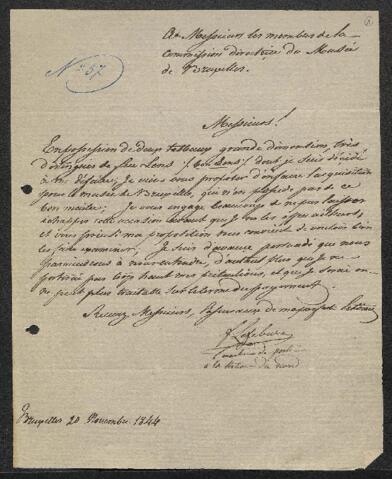 N° 57
A Messieurs les membres de la
Commission directrice du Musée
de Bruxelles.
Messieurs!
En possession de deux tableaux grande dimention, très
de Lens dont je suis décidé
à me défaire; Je viens vous proposer d'en faire l'acquisition
pour le musée de Bruxelles, qui n'en possède pas de ce
bon maître; Je vous engage beaucoup à ne pas laisser
échapper cette occasion
et vous priant si ma proposition vous convient de vouloir bien
les faire examiner. Je suis d'avance persuadé que nous
parviendrons à nous entendre, d'autant plus que je ne
porterai pas bien haut mes prétentions, et que je serai on
ne peut plus traitable sur le terme du payement.
Recevez Messieurs, l'assurance de ma parfaite
Lefebure
à la station du nord
Bruxelles 20 Novembre 1844